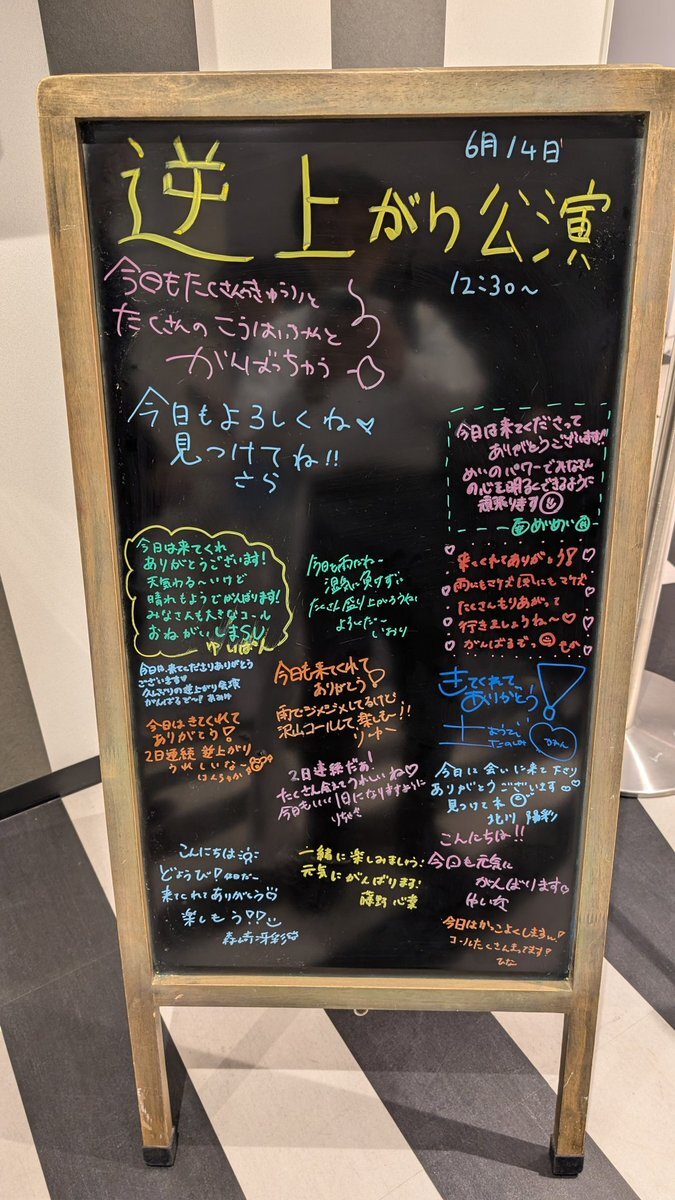 6月14日
逆上がり公演
12:30~
今日もたくさん
たくさんの こうはいちゃんと
がんばっちゃう
今日もよろしくね♡
見つけてね!!
さら
今日は来てくださって
ありがとうございます!!
めいのパワーでみなさん
の心を明るくできるように
頑張ります☺
めいめい
今日は来てくれ
ありがとうございます!
天気わる〜いけど
晴れもようでがんばります!
みなさんも大きなコール
おねがいしまSU
ゆいぱん
今日も雨だね〜
湿気に負けずに
たくさん盛り上がろうね
よろしくだ〜
しおり
来てくれてありがとう!
雨にもマケズ風にもマケズ
たくさんもりあがって
行きましょうね〜♡
がんばるぞっ☺ もか
今日は、来てくださりありがとう
ございます♡
久しぶりの逆上がり公演
がんばるぞ〜!
今日も来てくれて
ありがとう!
雨でジメジメしてるけど
沢山コールして楽しも〜!!
きてくれて
ありがとう!
土
ようび
たのしみ
今日はきてくれて
ありがとう!
2日連続 逆上がり
うれしいな〜
はんちゃか
2日連続だぁ!
たくさん会えてうれしいね♡
今日もいい1日になりますように
りちゃむ
今日は会いに来て下さり
ありがとうございます♡
見つけてネ☺
北川 陽彩
こんにちは
どようび!
来てくれてありがとう♡
楽しもう!!☺
一緒に楽しみましょう!
元気にがんばります!
藤野 心葉
こんにちは!!
今日も元気に
がんばります♡
今日はかっこよくします!
コールたくさんまってます!
ひな